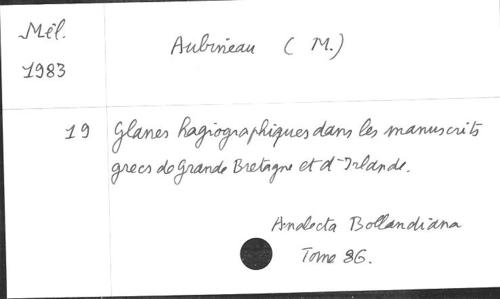 Mél.
1983
Aubineau ( M.)
19 Glanes hagiographiques dans les manuscrits
grecs de Grande Bretagne et d'Irlande.
Analecta Bollandiana
Tome 86.